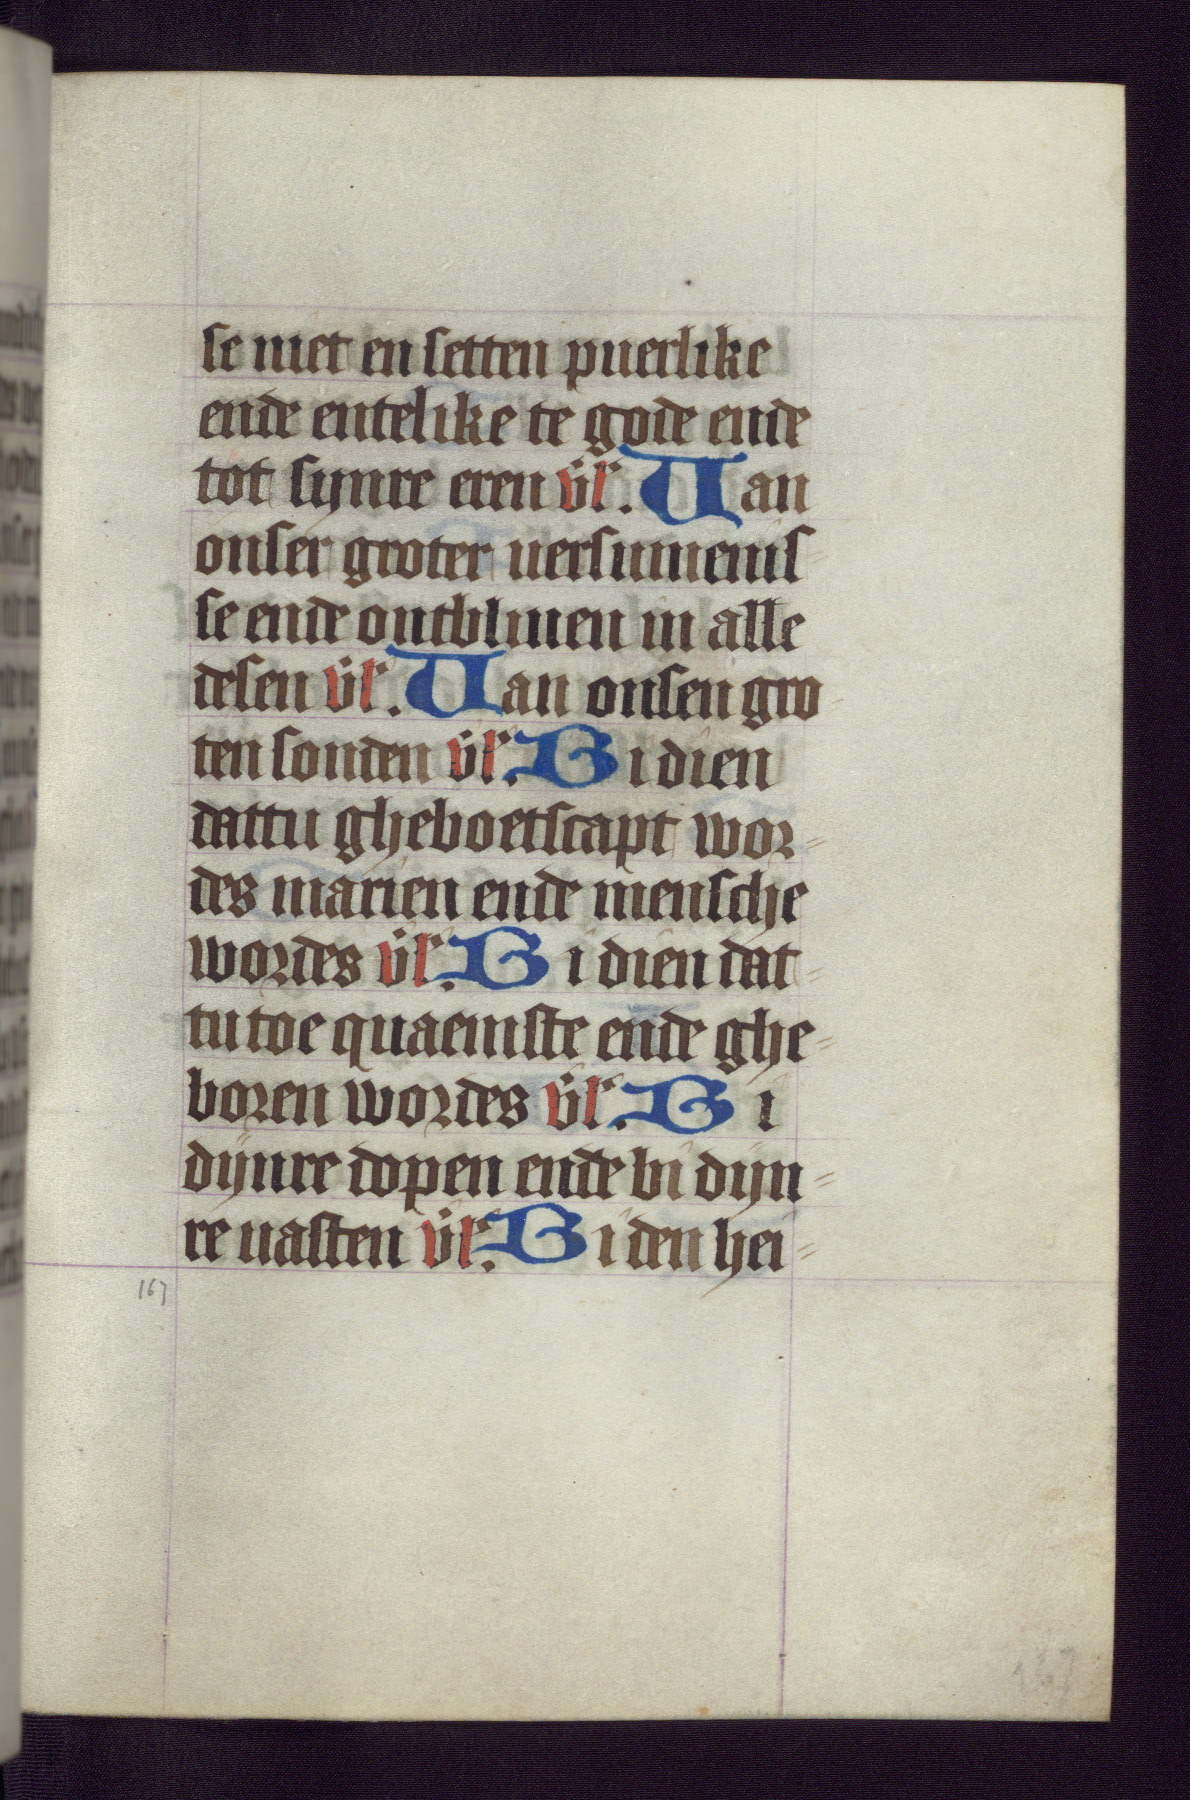 se niet en setten puerlike
ende entelike te gode ende
tot sijnre eren v̈l'. Uan
onser groter uersumenis-
se ende ontbliuen in alle
desen v̈l'. Uan onsen gro-
ten sonden v̈l'. Bi dien
dattu gheboetscapt wor-
des marien ende mensche
wordes v̈l'. Bi dien dat-
tu toe quaemste ende ghe-
boren wordes v̈l'. Bi
dijnre dopen ende bi dijn-
re uasten v̈l'. Bi den hei-
167
167